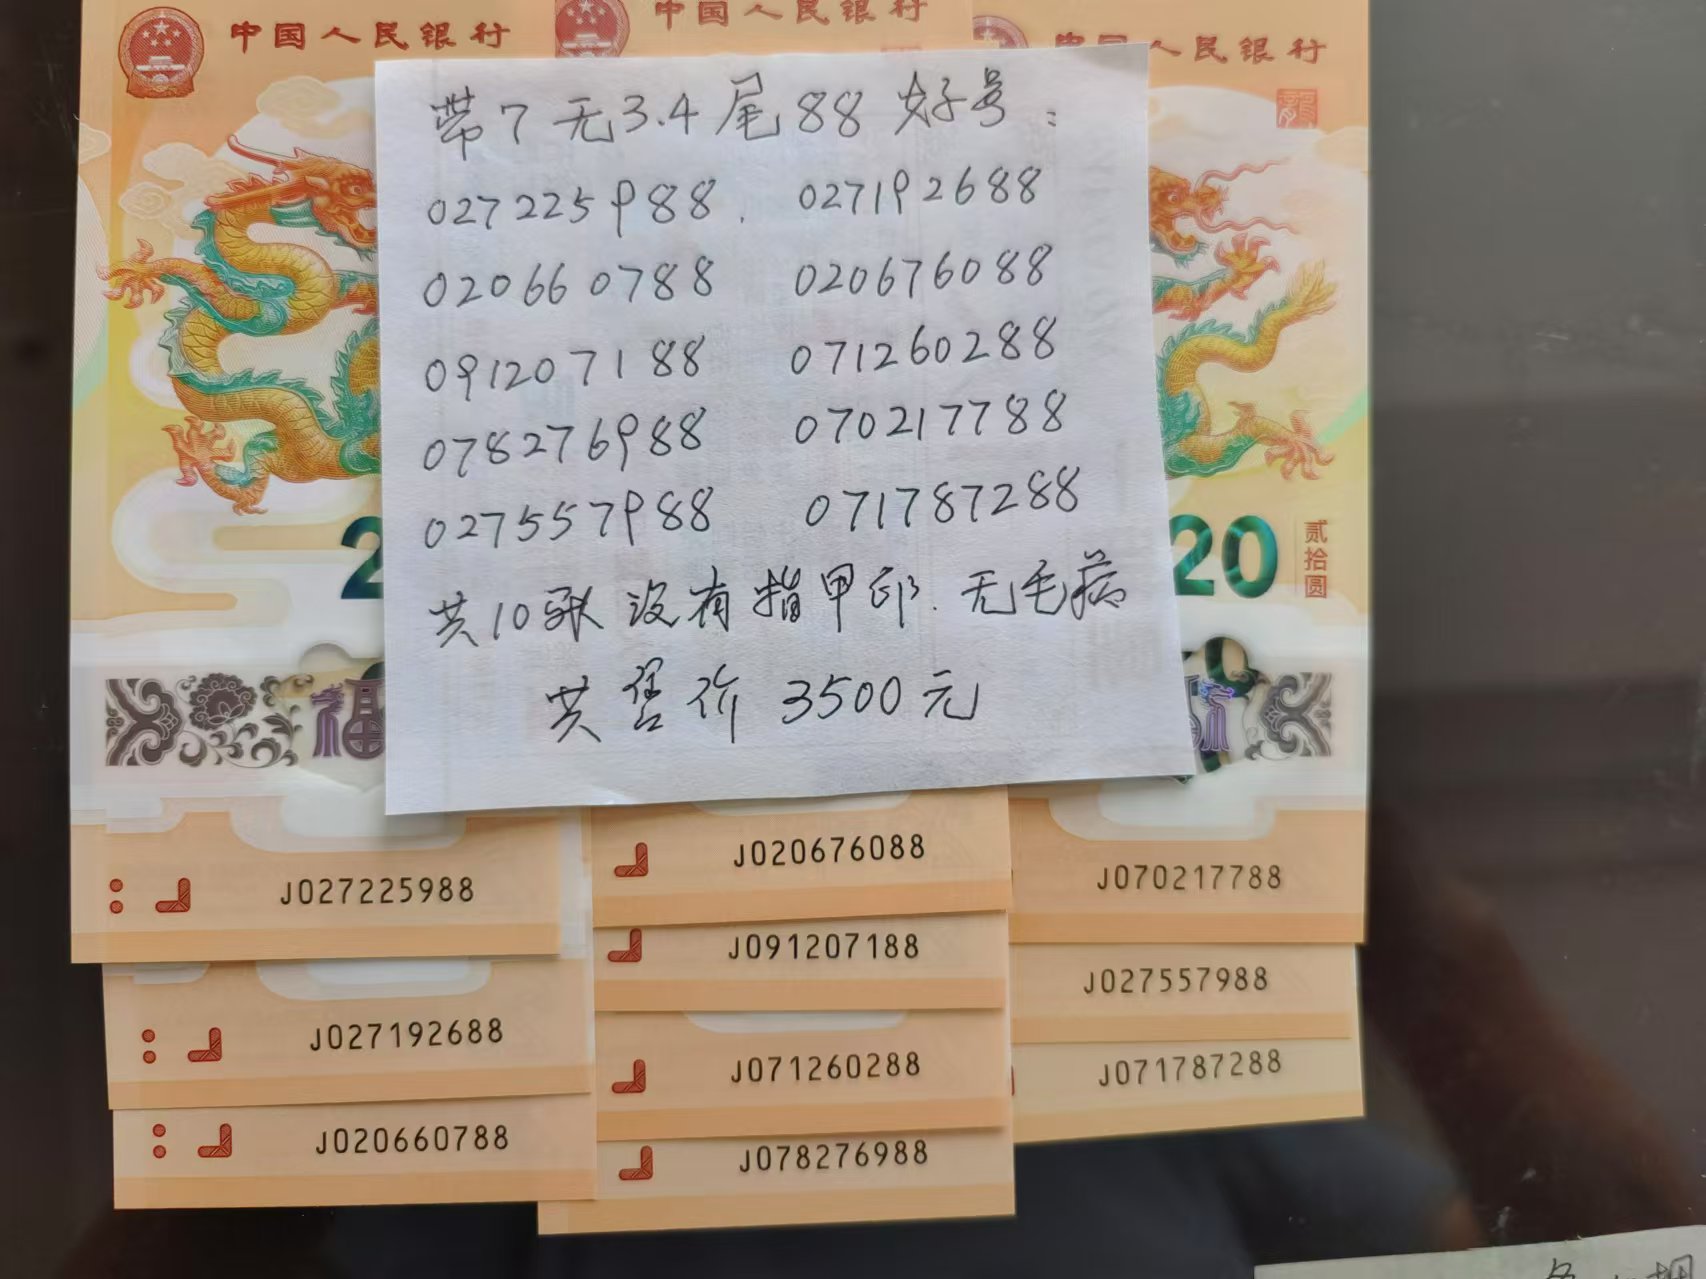 中国人民银行
中国人民银行
人民银行
带7无3.4尾88好号：
027225988. 027192688
020660788 020676088
091207188 071260288
078276988 070217788
027557988 071787288
共10张 没有指甲印.无毛病
共售价 3500元
20
贰拾圆
福
J027225988
J027192688
J020660788
J020676088
J091207188
J071260288
J078276988
J070217788
J027557988
J071787288